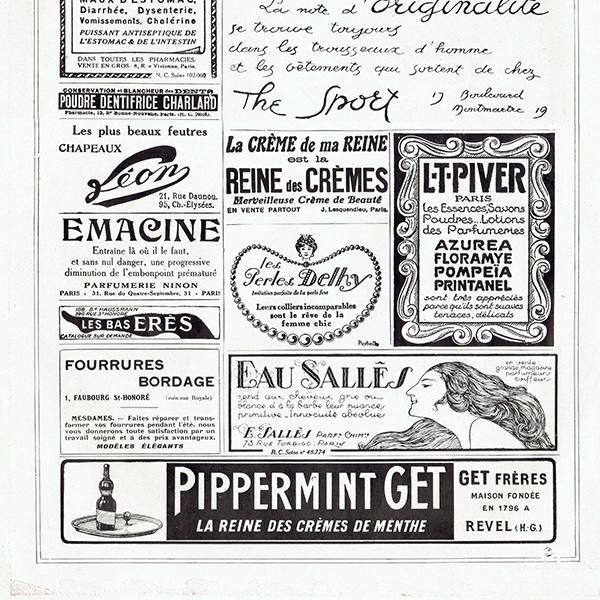 MAUX D'ESTOMAC,
Diarrhée, Dysenterie,
Vomissements, Cholérine
PUISSANT ANTISEPTIQUE DE
L'ESTOMAC & DE L'INTESTIN
DANS TOUTES LES PHARMACIES.
VENTE EN GROS - 8, R. Vivienne, Paris.
R.C. Seine 102.060
La note d'Originalité
se trouve toujours
dans les trousseaux d'homme
et les vêtements qui sortent de chez
The Sport 17 Boulevard
Montmartre 19
CONSERVATION et BLANCHEUR des DENTS
POUDRE DENTIFRICE CHARLARD
Pharmacie, 12, Bd Bonne-Nouvelle, Paris.
Les plus beaux feutres
CHAPEAUX
Léon
21, Rue Daunou.
95, Ch.-Elysées.
La CRÈME de ma REINE
est la
REINE des CRÈMES
Merveilleuse Crème de Beauté
EN VENTE PARTOUT J. Lesquendieu, Paris.
L.T. PIVER
PARIS
les Essences, Savons
Poudres... Lotions
des Parfumeries
AZUREA
FLORAMYE
POMPEÏA
PRINTANEL
sont très appréciés
parce qu'ils sont suaves
tenaces, délicats
EMACINE
Entraîne là où il le faut,
et sans nul danger, une progressive
diminution de l'embonpoint prématuré
PARFUMERIE NINON
PARIS - 31, Rue du Quatre-Septembre, 31 - PARIS
les Perles Delhy
Imitation parfaite de la perle fine
Leurs colliers incomparables
sont le rêve de la
femme chic
108 Bd HAUSSMANN
390 RUE St HONORÉ
LES BAS ERÈS
CATALOGUE SUR DEMANDE
FOURRURES
BORDAGE
1, FAUBOURG St-HONORÉ (coin rue Royale)
MESDAMES. - Faites réparer et trans-
former vos fourrures pendant l'été, nous
vous donnerons toute satisfaction par un
travail soigné et à des prix avantageux.
MODÈLES ÉLÉGANTS
EAU SALLÈS
rend aux cheveux gris ou
blancs & à la barbe leur nuance
primitive. Innocuité absolue
E. SALLÈS PARFr CHIMte
73 RUE TURBIGO. PARIS
R.C. Seine nº 48.774
en vente:
grands magasins
parfumeurs
coiffeurs
PIPPERMINT GET
LA REINE DES CRÈMES DE MENTHE
GET FRÈRES
MAISON FONDÉE
EN 1796 A
REVEL (H.-G.)